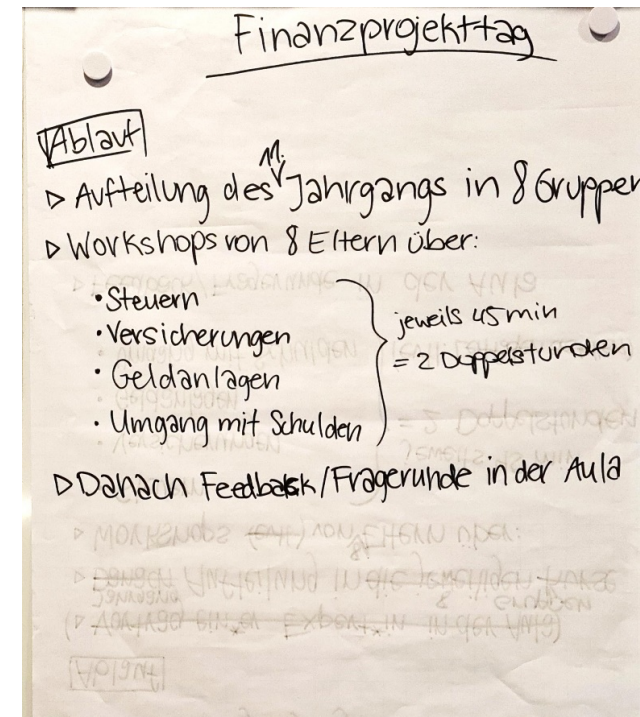 Finanzprojekttag
Ablauf
▷ Aufteilung des 11. Jahrgangs in 8 Gruppen
▷ Workshops von 8 Eltern über:
• Steuern
• Versicherungen
• Geldanlagen
• Umgang mit Schulden
jeweils 45 min
= 2 Doppelstunden
▷ Danach Feedback/Fragerunde in der Aula